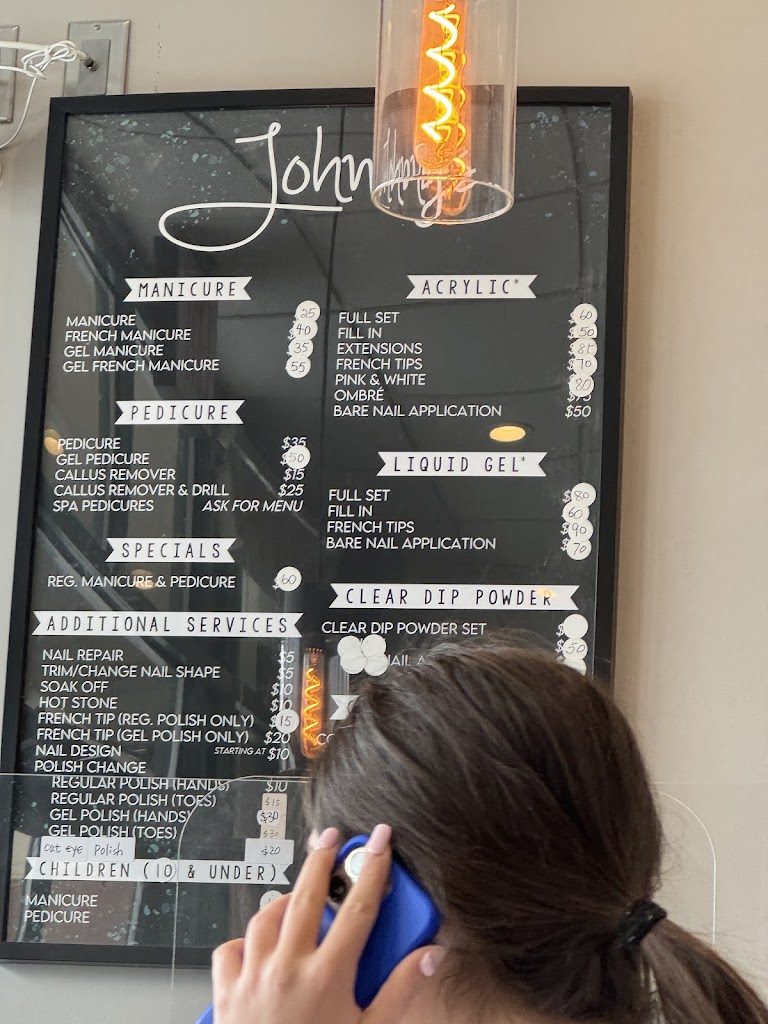 MANICURE
MANICURE 25
FRENCH MANICURE 40
GEL MANICURE 35
GEL FRENCH MANICURE 55
PEDICURE
PEDICURE $35
GEL PEDICURE $50
CALLUS REMOVER $15
CALLUS REMOVER & DRILL $25
SPA PEDICURES ASK FOR MENU
SPECIALS
REG. MANICURE & PEDICURE 60
ADDITIONAL SERVICES
NAIL REPAIR $5
TRIM/CHANGE NAIL SHAPE $5
SOAK OFF $10
HOT STONE
FRENCH TIP (REG. POLISH ONLY) 15
FRENCH TIP (GEL POLISH ONLY) $20
NAIL DESIGN STARTING AT $10
POLISH CHANGE
REGULAR POLISH (HANDS) $10
REGULAR POLISH (TOES) $15
GEL POLISH (HANDS) $30
GEL POLISH (TOES) $30
cat eye Polish $20
CHILDREN (10 & UNDER)
MANICURE
PEDICURE
ACRYLIC*
FULL SET $60
FILL IN $50
EXTENSIONS
FRENCH TIPS $70
PINK & WHITE 80
OMBRÉ
BARE NAIL APPLICATION $50
LIQUID GEL*
FULL SET $80
FILL IN 60
FRENCH TIPS $90
BARE NAIL APPLICATION 70
CLEAR DIP POWDER
CLEAR DIP POWDER SET $
50